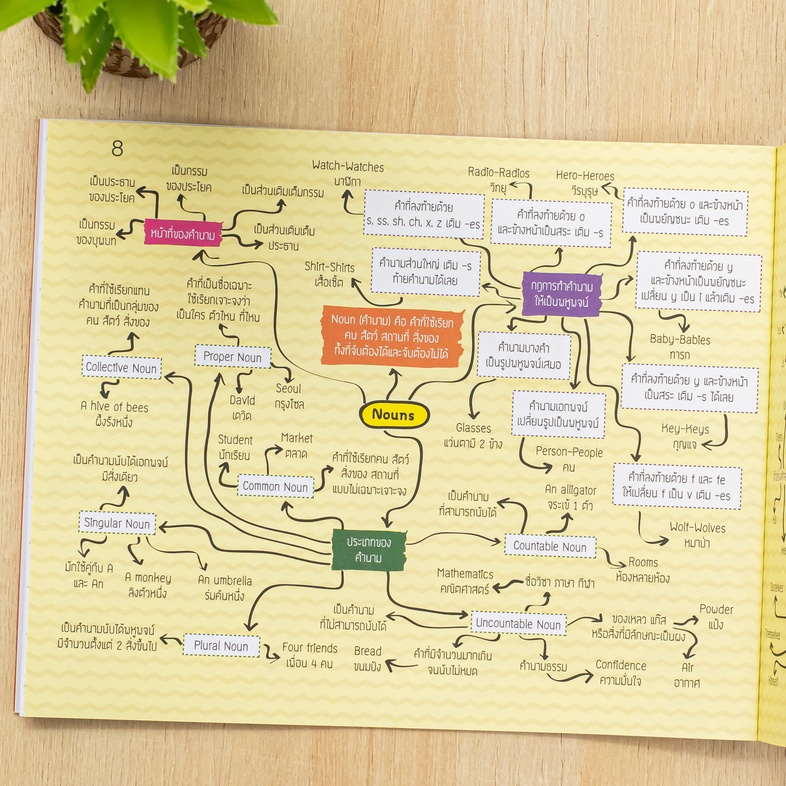 8
เป็นประธาน
ของประโยค
เป็นกรรม
ของประโยค
เป็นส่วนเติมเต็มกรรม
เป็นกรรม
ของบุพบท
หน้าที่ของคำนาม
เป็นส่วนเติมเต็ม
ประธาน
Watch-Watches
นาฬิกา
คำที่ลงท้ายด้วย
s, ss, sh, ch, x, z เติม -es
Radio-Radios
วิทยุ
คำที่ลงท้ายด้วย o
และข้างหน้าเป็นสระ เติม -s
Hero-Heroes
วีรบุรุษ
คำที่ลงท้ายด้วย o และข้างหน้า
เป็นพยัญชนะ เติม -es
Shirt-Shirts
เสื้อเชิ้ต
คำนามส่วนใหญ่ เติม -s
ท้ายคำนามได้เลย
กฎการทำคำนาม
ให้เป็นพหูพจน์
คำที่ลงท้ายด้วย y
และข้างหน้าเป็นพยัญชนะ
เปลี่ยน y เป็น i แล้วเติม -es
Baby-Babies
ทารก
คำที่ใช้เรียกแทน
คำนามที่เป็นกลุ่มของ
คน สัตว์ สิ่งของ
Collective Noun
A hive of bees
ผึ้งรังหนึ่ง
คำที่เป็นชื่อเฉพาะ
ใช้เรียกเจาะจงว่า
เป็นใคร ตัวไหน ที่ไหน
Proper Noun
David
เดวิด
Seoul
กรุงโซล
Noun (คำนาม) คือ คำที่ใช้เรียก
คน สัตว์ สถานที่ สิ่งของ
ทั้งที่จับต้องได้และจับต้องไม่ได้
Nouns
คำนามบางคำ
เป็นรูปพหูพจน์เสมอ
Glasses
แว่นตามี 2 ข้าง
คำนามเอกพจน์
เปลี่ยนรูปเป็นพหูพจน์
Person-People
คน
คำที่ลงท้ายด้วย y และข้างหน้า
เป็นสระ เติม -s ได้เลย
Key-Keys
กุญแจ
คำที่ลงท้ายด้วย f และ fe
ให้เปลี่ยน f เป็น v เติม -es
Wolf-Wolves
หมาป่า
Student
นักเรียน
Market
ตลาด
คำที่ใช้เรียกคน สัตว์
สิ่งของ สถานที่
แบบไม่เฉพาะเจาะจง
Common Noun
เป็นคำนามนับได้เอกพจน์
มีสิ่งเดียว
Singular Noun
มักใช้คู่กับ A
และ An
A monkey
ลิงตัวหนึ่ง
An umbrella
ร่มคันหนึ่ง
ประเภทของ
คำนาม
เป็นคำนาม
ที่สามารถนับได้
An alligator
จระเข้ 1 ตัว
Countable Noun
Rooms
ห้องหลายห้อง
Mathematics
คณิตศาสตร์
ชื่อวิชา ภาษา กีฬา
เป็นคำนาม
ที่ไม่สามารถนับได้
Uncountable Noun
ของเหลว แก๊ส
หรือสิ่งที่มีลักษณะเป็นผง
Powder
แป้ง
Air
อากาศ
เป็นคำนามนับได้พหูพจน์
มีจำนวนตั้งแต่ 2 สิ่งขึ้นไป
Plural Noun
Four friends
เพื่อน 4 คน
Bread
ขนมปัง
คำที่มีจำนวนมากเกิน
จนนับไม่หมด
คำนามธรรม
Confidence
ความมั่นใจ